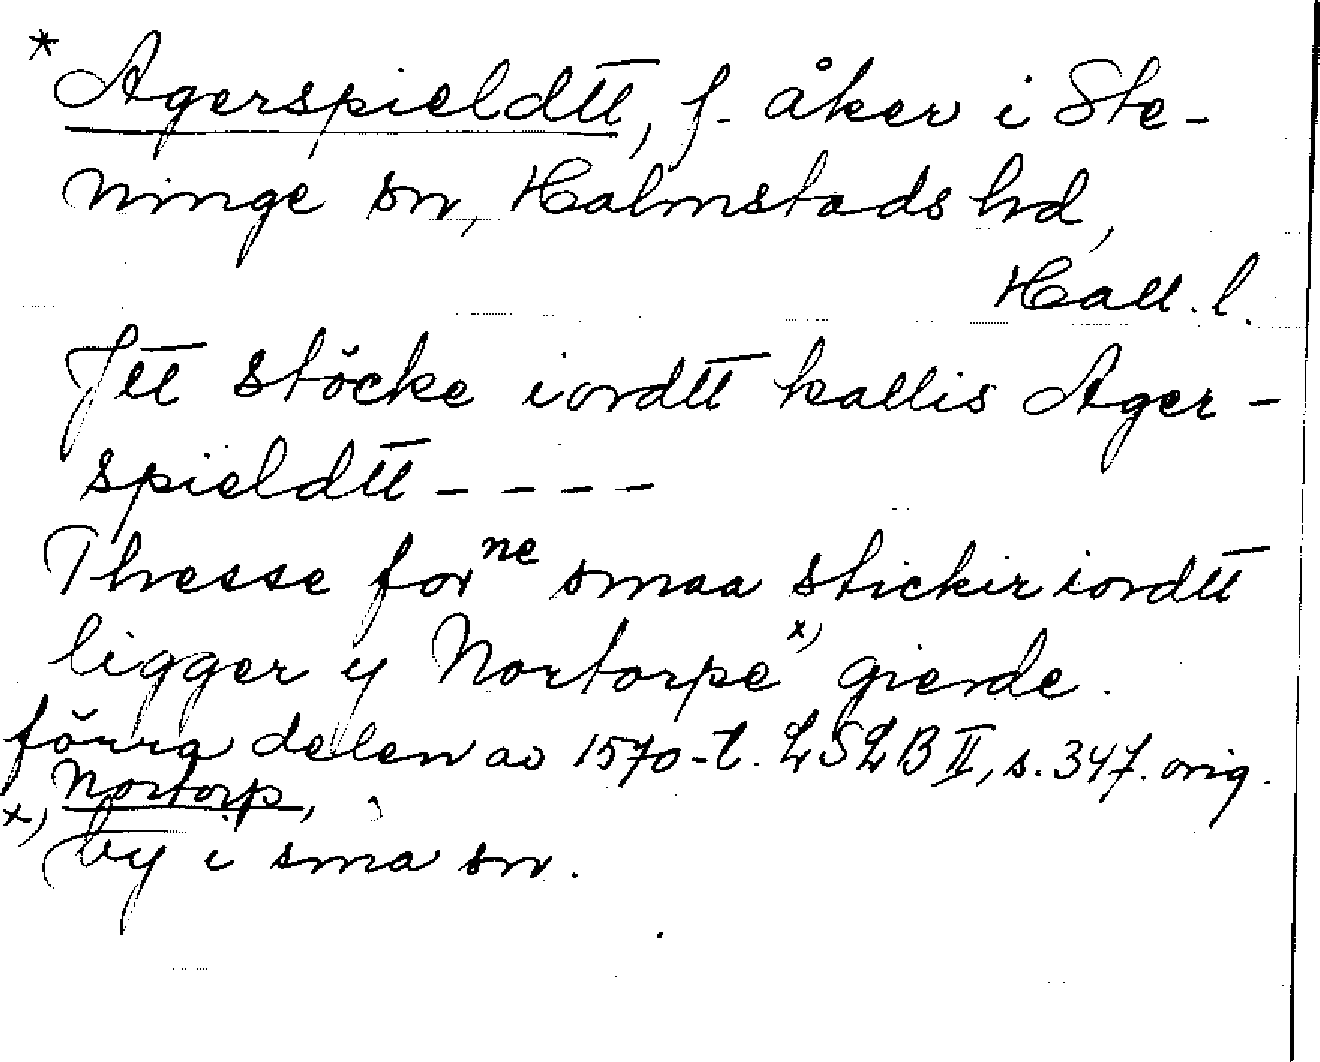 * Agerspieldtt, f. åker i Ste-
ninge sn, Halmstads hd,
Hall. l.
Jtt stöcke iordtt kallis Ager-
spieldtt - - - -
Thesse forne smaa stickir iordtt
ligger y Nortorpe x) gierde.
förra delen av 1570-t. LSLB II, s. 347. orig.
x) Nortorp,
by i sma sn.